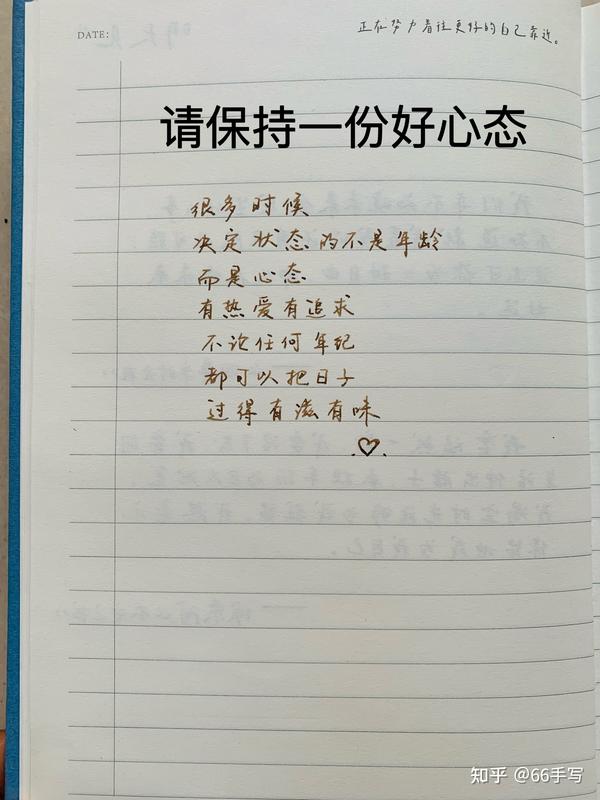 DATE:
正在努力着往更好的自己靠近。
请保持一份好心态
很多时候
决定状态的不是年龄
而是心态
有热爱有追求
不论任何年纪
都可以把日子
过得有滋有味
知乎 @66手写